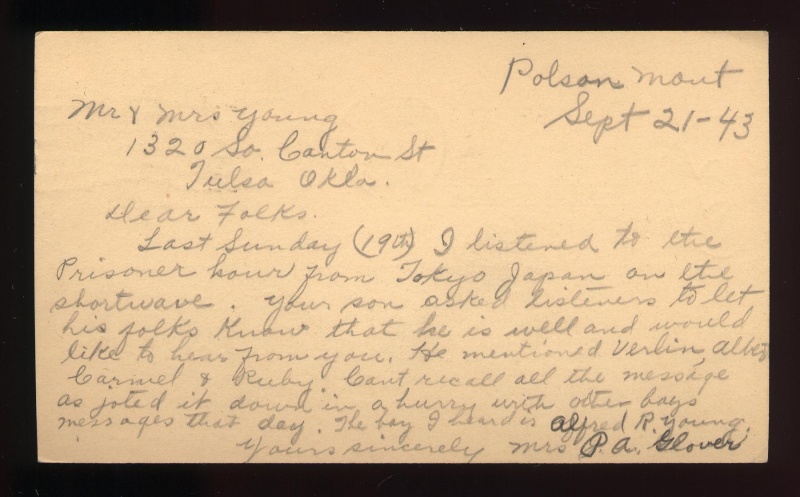 Polson Mont
Sept 21-43
Mr & Mrs Young
1320 So. Canton St
Tulsa Okla.
Dear Folks.
Last Sunday (19th) I listened to the
Prisoner hour from Tokyo Japan on the
shortwave. Your son asked listeners to let
his folks know that he is well and would
like to hear from you. He mentioned Verlin, Albert
Carmel & Ruby. Cant recall all the message
as joted it down in a hurry with other boys
messages that day. The boy I heard is alfred R. Young.
Yours sincerely Mrs P.A. Glover